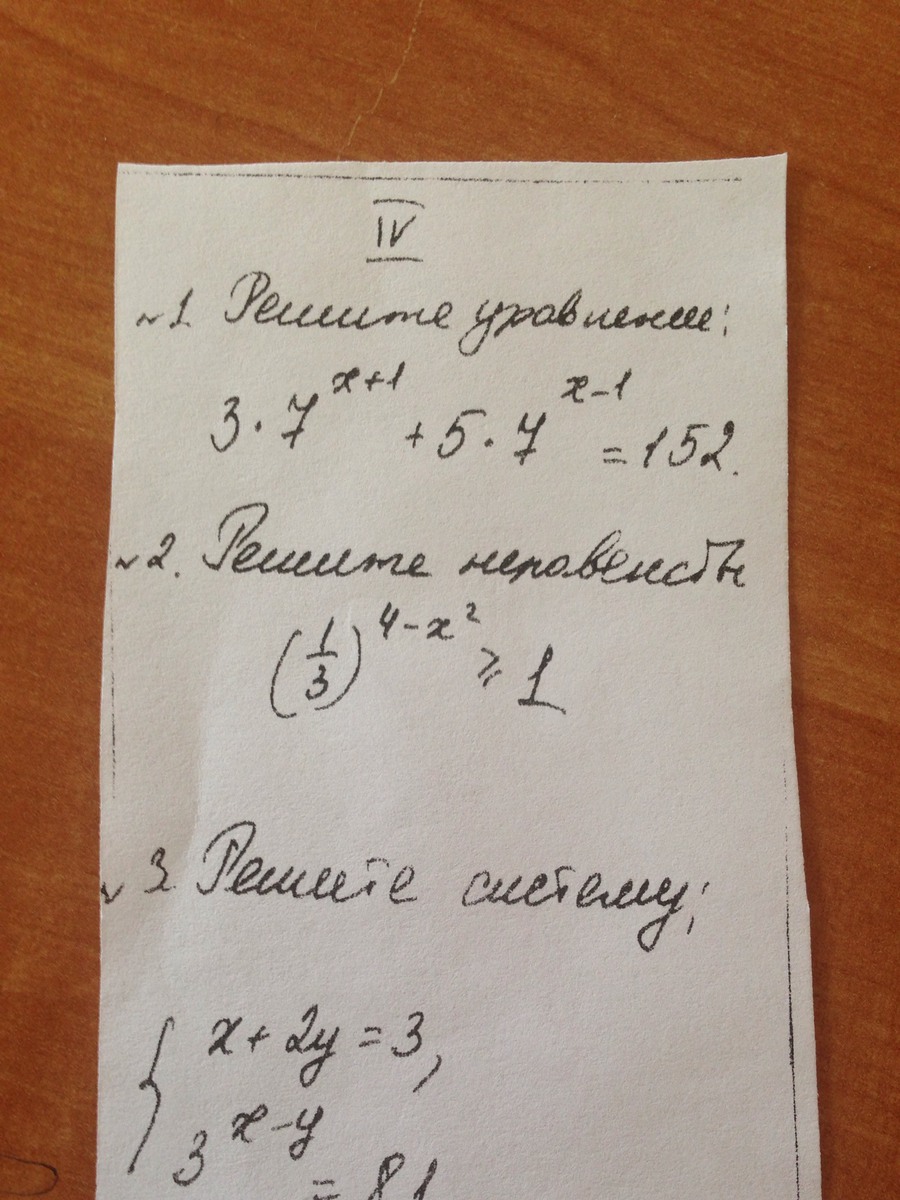 IV
№1. Решите уравнение:
3·7^(x+1) + 5·7^(x-1) = 152.
№2. Решите неравенство
(1/3)^(4-x²) ⩾ 1
№3 Решите систему:
{ x + 2y = 3,
3^(x-y) = 81